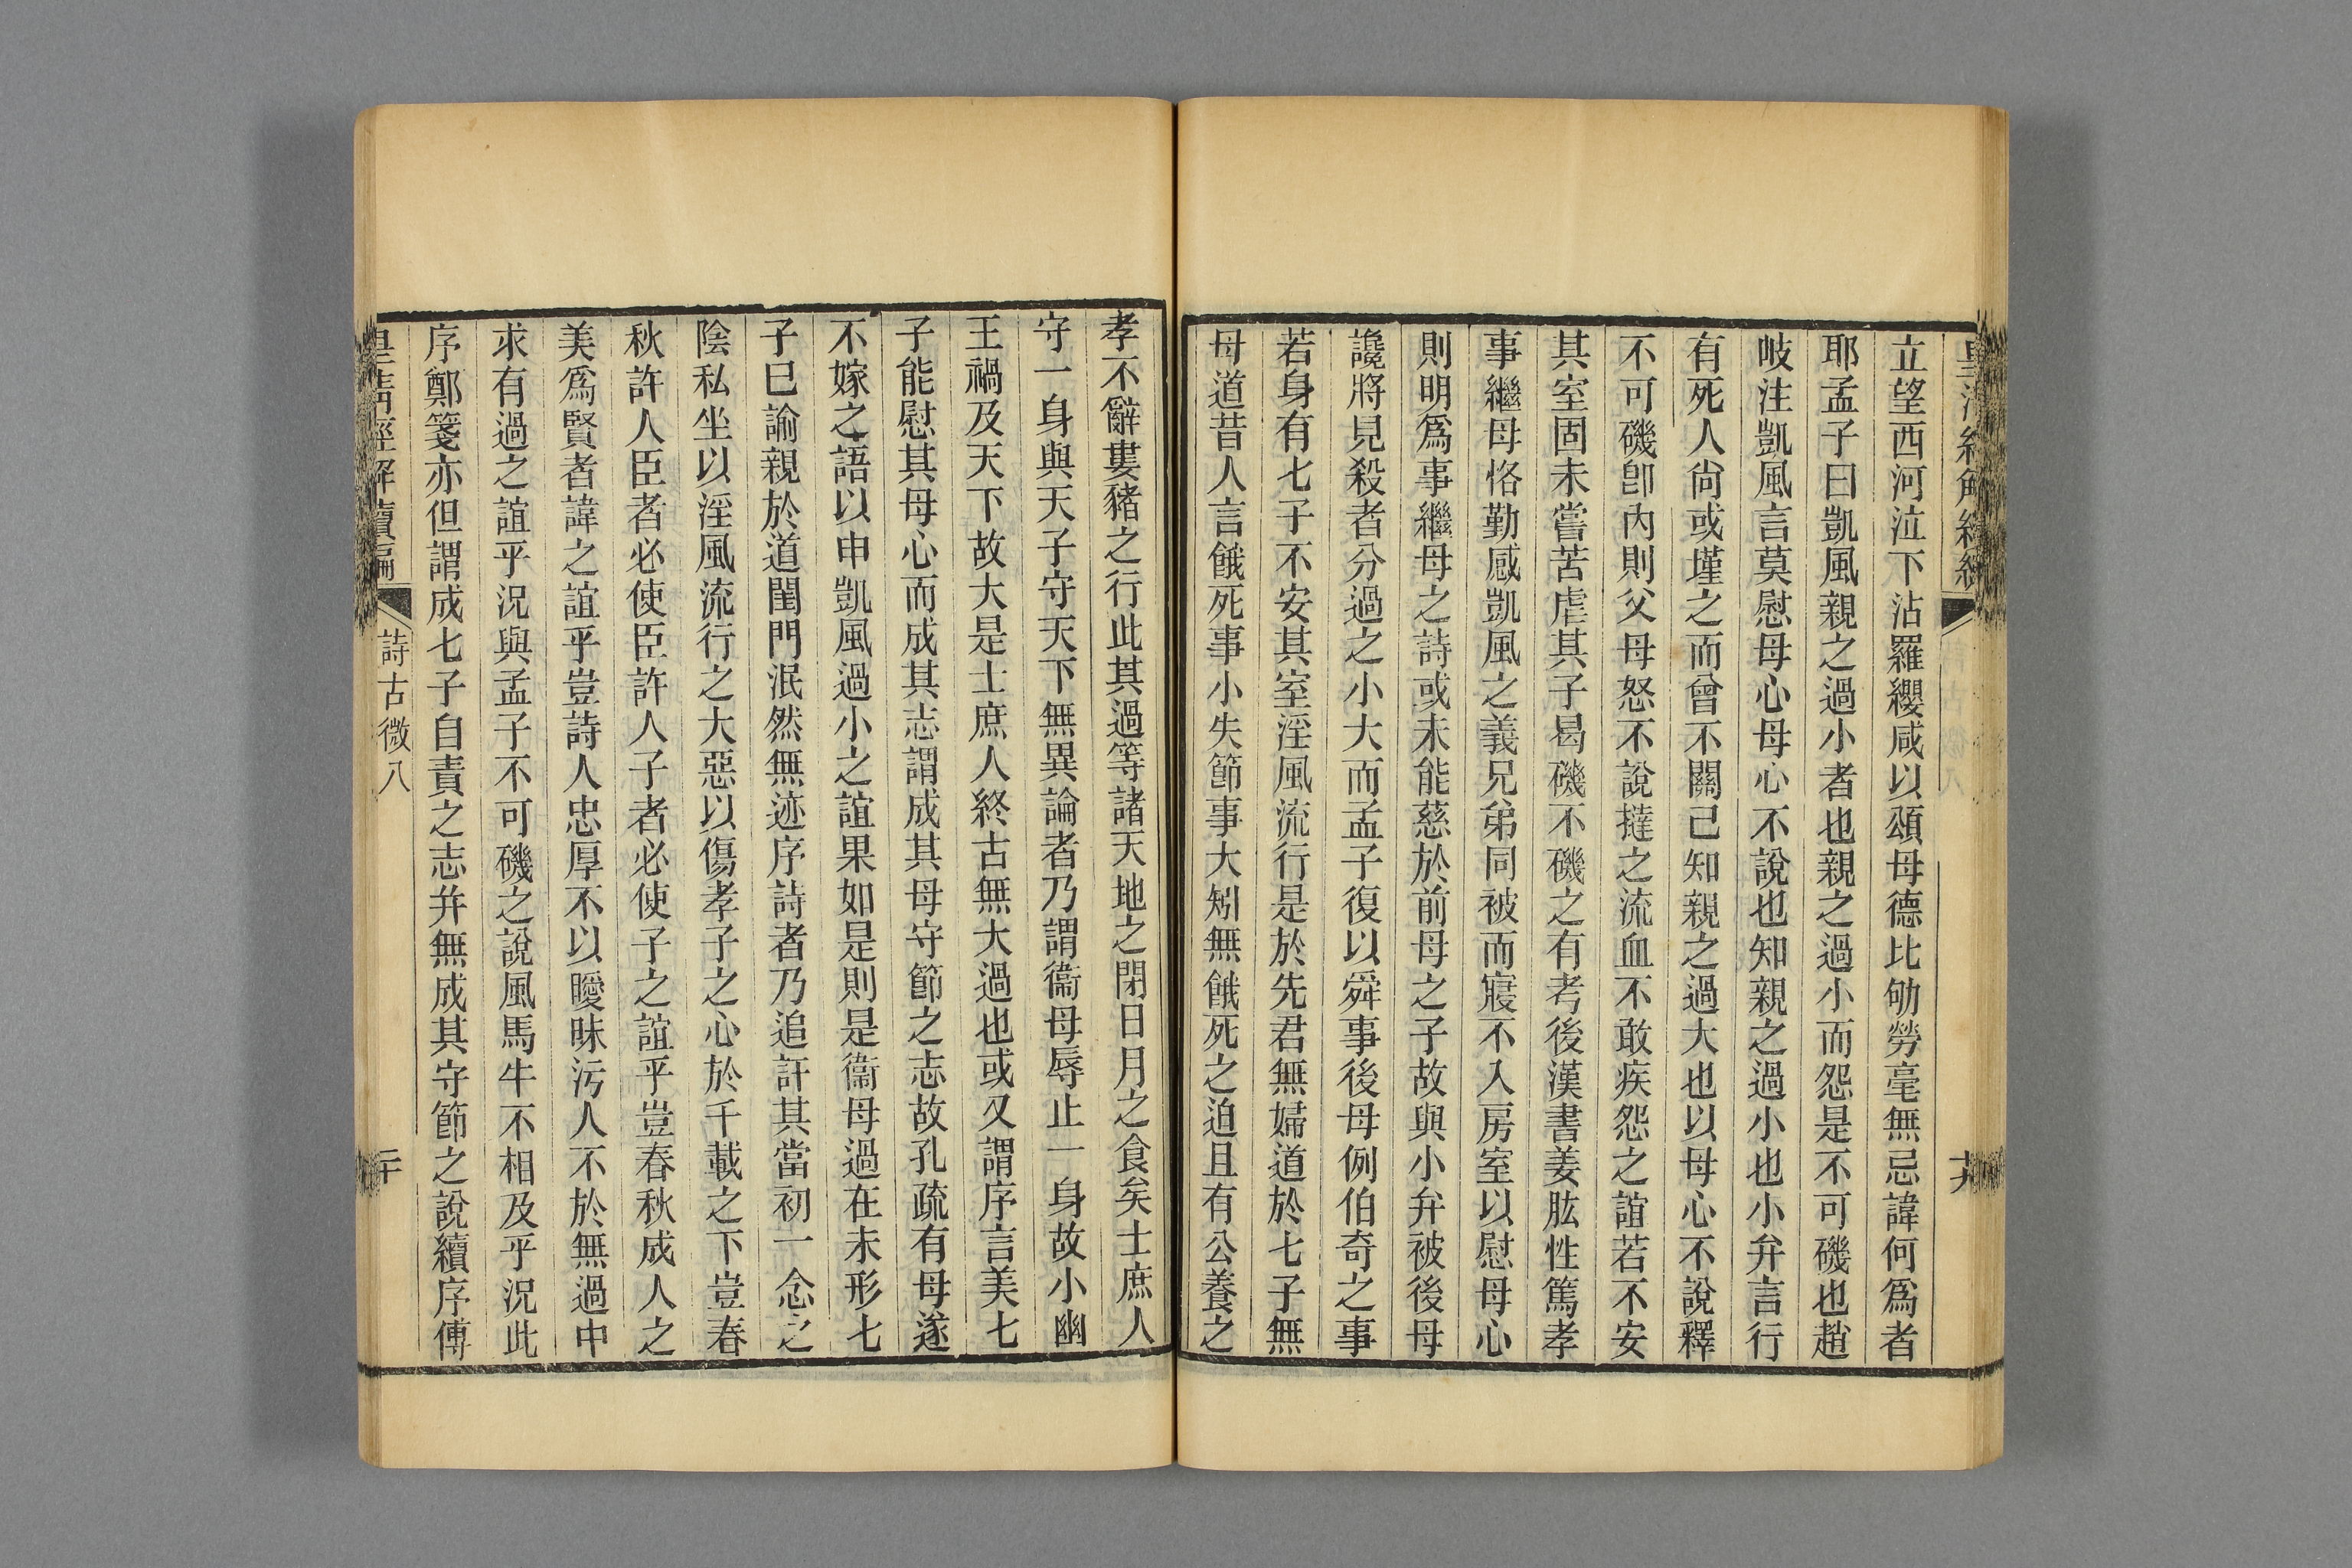 立望西河泣下沾羅纓咸以頌母德比劬勞毫無忌諱何爲者
耶孟子曰凱風親之過小者也親之過小而怨是不可磯也趙
岐注凱風言莫慰母心母心不說也知親之過小也小弁言行
有死人尙或墐之而曾不關己知親之過大也以母心不說釋
不可磯卽內則父母怒不說撻之流血不敢疾怨之誼若不安
其室固未嘗苦虐其子曷磯不磯之有考後漢書姜肱性篤孝
事繼母恪勤感凱風之義兄弟同被而寢不入房室以慰母心
則明爲事繼母之詩或未能慈於前母之子故與小弁被後母
讒將見殺者分過之小大而孟子復以舜事後母例伯奇之事
若身有七子不安其室淫風流行是於先君無婦道於七子無
母道昔人言餓死事小失節事大矧無餓死之迫且有公養之
孝不辭婁豬之行此其過等諸天地之閉日月之食矣士庶人
守一身與天子守天下無異論者乃謂衞母辱止一身故小幽
王禍及天下故大是士庶人終古無大過也或又謂序言美七
子能慰其母心而成其志謂成其母守節之志故孔疏有母遂
不嫁之語以申凱風過小之誼果如是則是衞母過在未形七
子巳諭親於道閨門泯然無迹序詩者乃追訐其當初一念之
陰私坐以淫風流行之大惡以傷孝子之心於千載之下豈春
秋許人臣者必使臣許人子者必使子之誼乎豈春秋成人之
美爲賢者諱之誼乎豈詩人忠厚不以曖昧污人不於無過中
求有過之誼乎況與孟子不可磯之說風馬牛不相及乎況此
序鄭箋亦但謂成七子自責之志幷無成其守節之說續序傅
皇清經解續編
詩古微八
二十